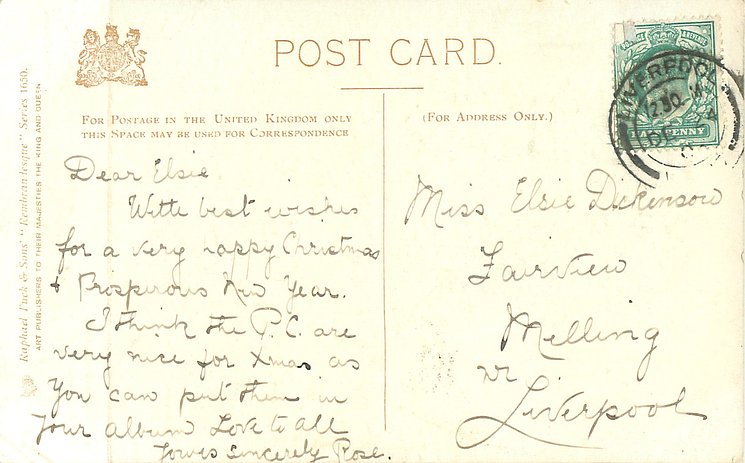 POST CARD.
FOR POSTAGE IN THE UNITED KINGDOM ONLY
THIS SPACE MAY BE USED FOR CORRESPONDENCE
(FOR ADDRESS ONLY.)
Raphael Tuck & Sons' "Rembrandtesque" Series 1650.
ART PUBLISHERS TO THEIR MAJESTIES THE KING AND QUEEN
POSTAGE & REVENUE
HALFPENNY
LIVERPOOL
12.30
DE
Dear Elsie
With best wishes
for a very happy Christmas
& Prosperous New Year.
I think the P.C. are
very nice for Xmas as
you can put them in
your album Love to all
Yours sincerely Rose.
Miss Elsie Dickinson
Fairview
Melling
nr
Liverpool